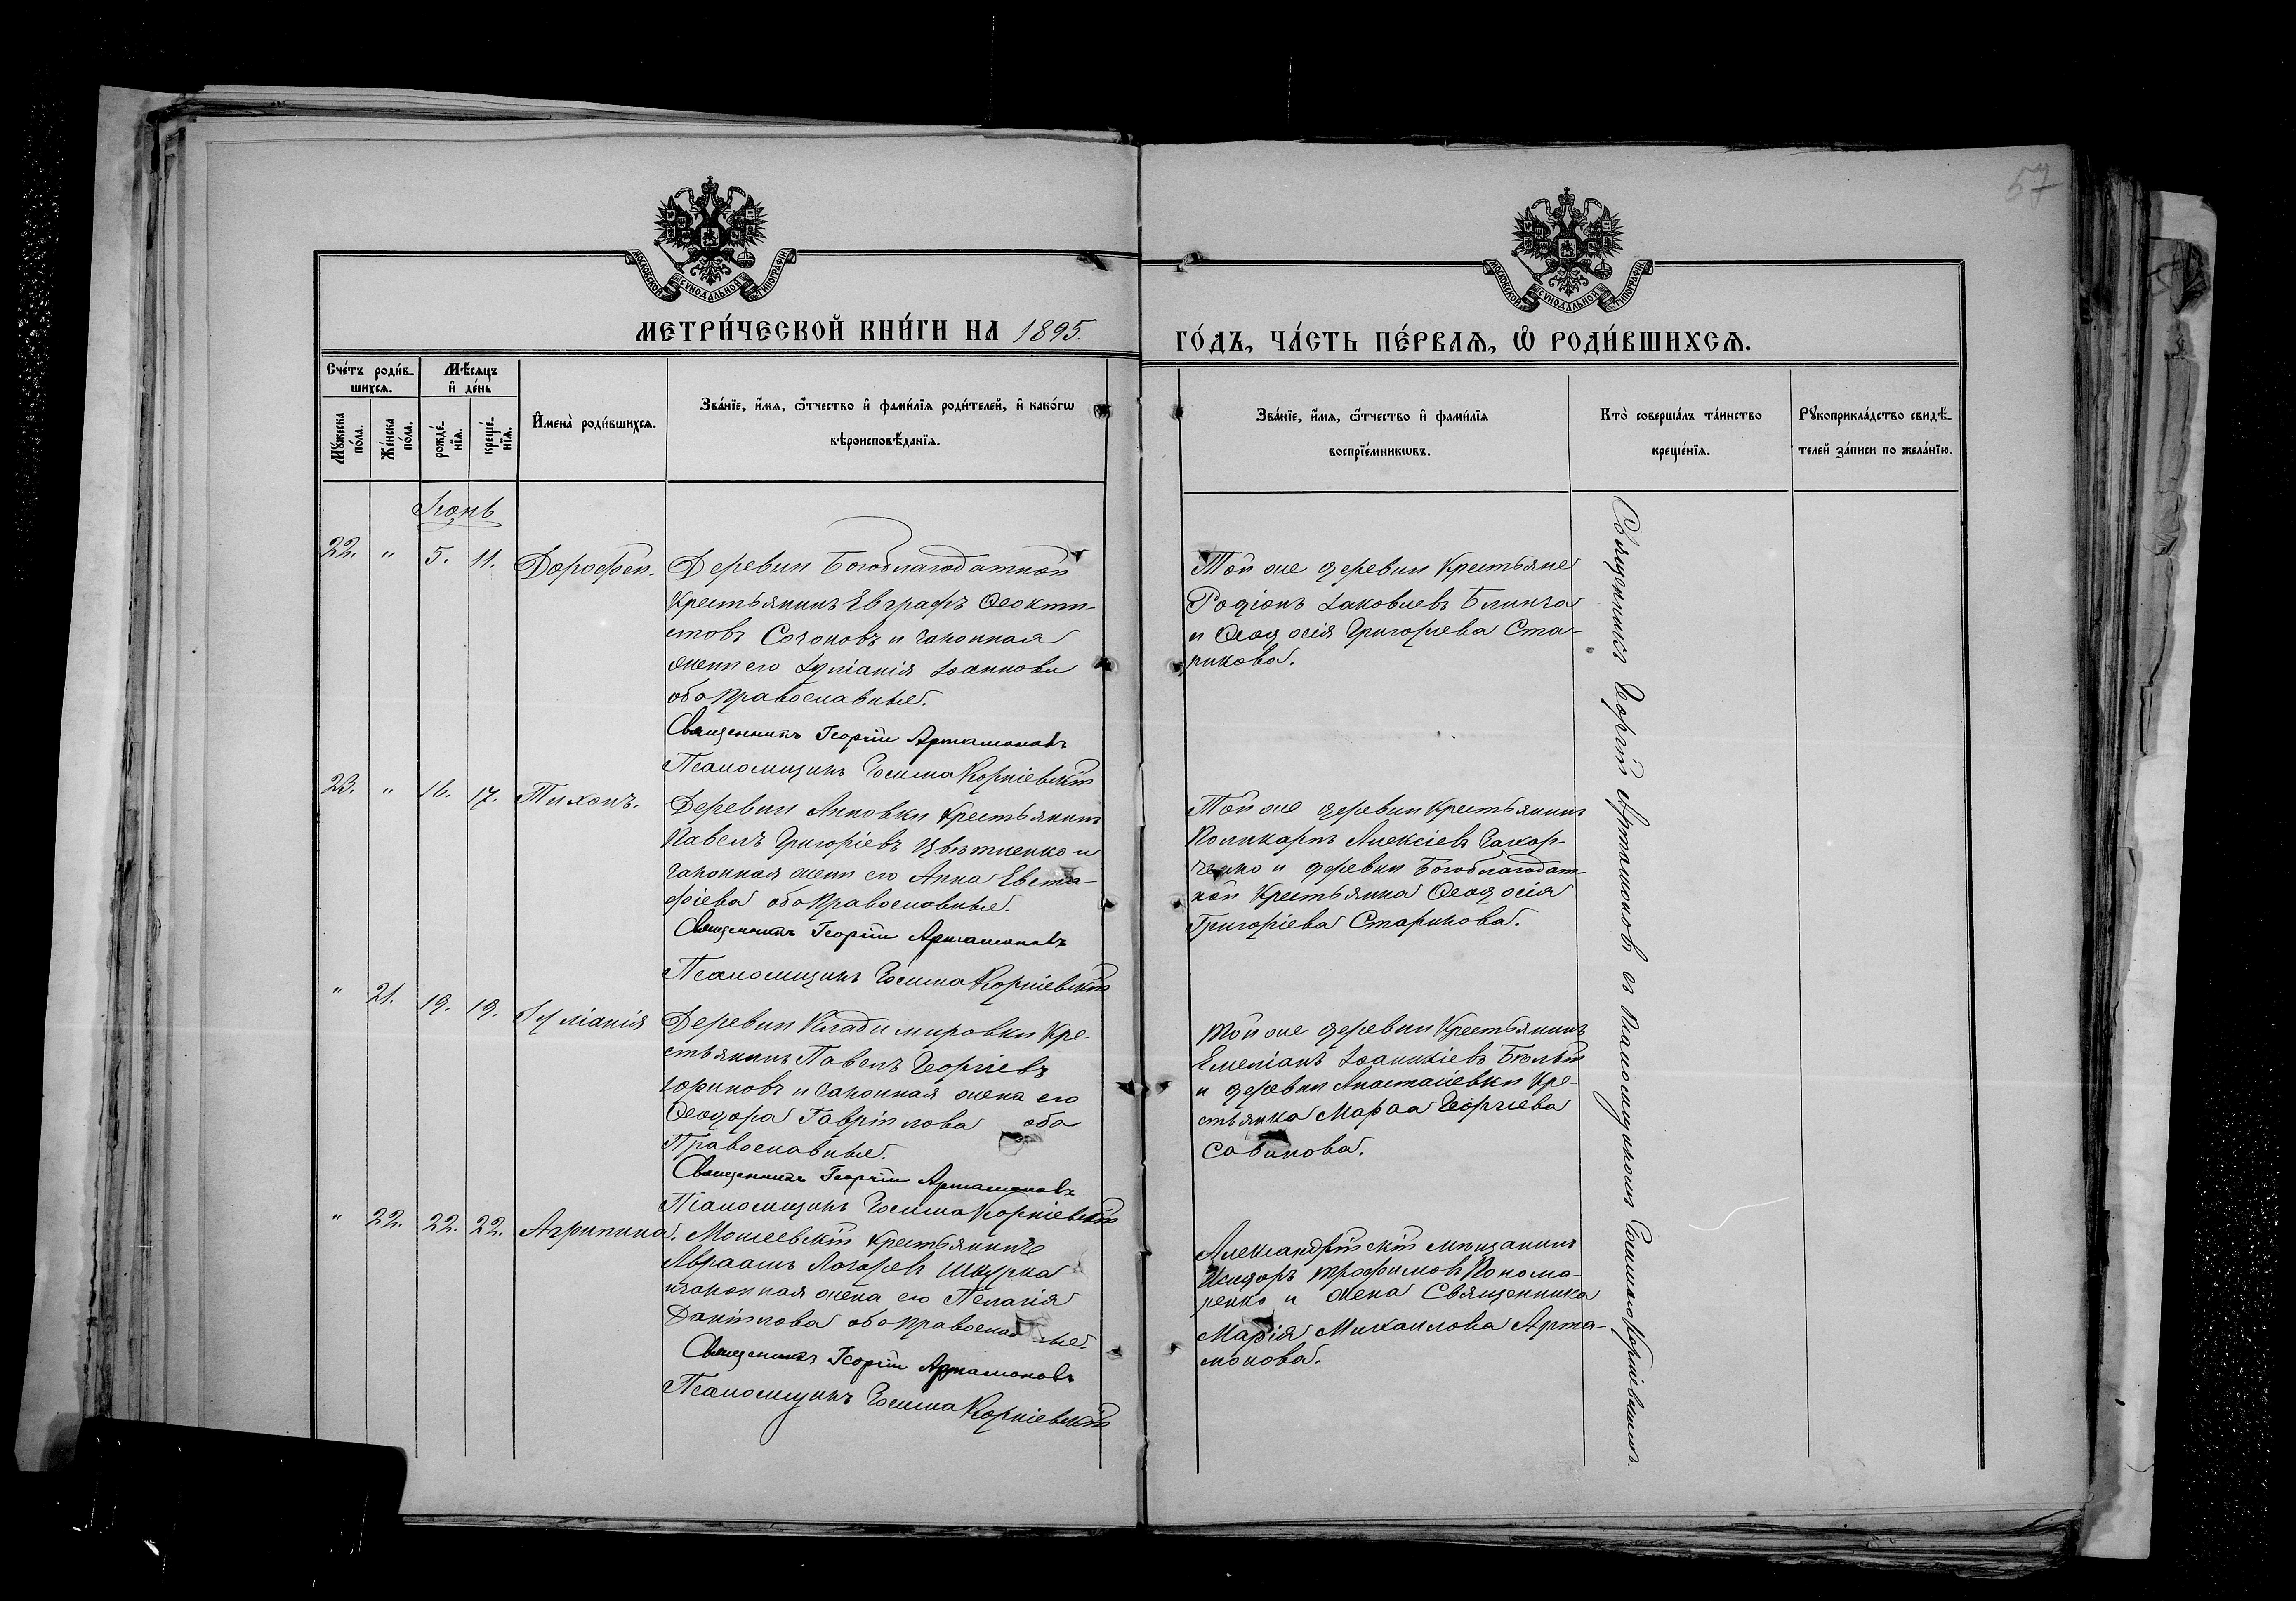 57
МОСКОВСКОЙ СУНОДАЛЬНОЙ ТИПОГРАФІИ
МОСКОВСКОЙ СУНОДАЛЬНОЙ ТИПОГРАФІИ
МЕТРИ́ЧЕСКОЙ КНИ́ГИ НА 1895.
ГО́ДЪ, ЧА́СТЬ ПЕ́РВАѦ, Ѡ҆ РОДИ́ВШИХСѦ.
Сче́тъ роди́в-
шихсѧ.
Мѣ́сѧцъ
и҆ де́нь
Мꙋ́жеска
по́ла.
Же́нска
по́ла.
рожде́-
нїѧ.
креще-
нїѧ.
И҆мена̀ роди́вшихсѧ.
Зва́нїе, и҆́мѧ, ѻ҆́тчество и҆ фами́лїѧ роди́телей, и҆ како́гѡ
вѣроисповѣ́данїѧ.
Зва́нїе, и҆́мѧ, ѻ҆́тчество и҆ фами́лїѧ
воспрїе́мникѡвъ.
Кто̀ соверша́лъ та́инство
креще́нїѧ.
Рꙋкоприкла́дство свидѣ́-
телей за́писи по жела́нїю.
Іюнь
22. " 5. 11. Дорофей.
Деревни Богоблагодатной
Крестьянинъ Евграфъ Ѳеокти-
стовъ Согоновъ и законная
жена его Іуліанія Іоаннова
оба православные.
Священникъ Георгій Артамоновъ
Псаломщикъ Косьма Корніевскій
Той же деревни Крестьяне
Родіонъ Іаковлевъ Блинча
и Ѳеодосія Григорьева Ста-
рикова.
23. " 16. 17. Тихонъ.
Деревни Анновки Крестьянинъ
Павелъ Григоріевъ Цвѣтненко и
законная жена его Анна Евста-
фіева оба православные.
Священникъ Георгій Артамоновъ
Псаломщикъ Косьма Корніевскій
Той же деревни Крестьянинъ
Поликарпъ Алексіевъ Захар-
ченко и деревни Богоблагодат-
ной Крестьянка Ѳеодосія
Григоріева Старикова.
" 21. 19. 19. Іуліанія
Деревни Владимировки Кре-
стьянинъ Павелъ Георгіевъ
Юриновъ и законная жена его
Ѳеодора Гавріилова оба
Православные.
Священникъ Георгій Артамоновъ
Псаломщикъ Косьма Корніевскій
Той же деревни Крестьянинъ
Емеліанъ Іоанникіевъ
и деревни Анастасіевки Кре-
стьянка Марѳа Георгіева
Савинова.
" 22. 22. 22. Агрипина.
Крестьянинъ
Авраамъ Лазаревъ Шкурка
и законная жена его Пелагія
Даніилова оба православные.
Священникъ Георгій Артамоновъ
Псаломщикъ Косьма Корніевскій
Александрійскій мѣщанинъ
Исидоръ Трофимовъ Понома-
ренко и жена Священника
Марія Михаилова Арта-
монова.
Священникъ Георгій Артамоновъ съ псаломщикомъ Косьмою Корніевскимъ.